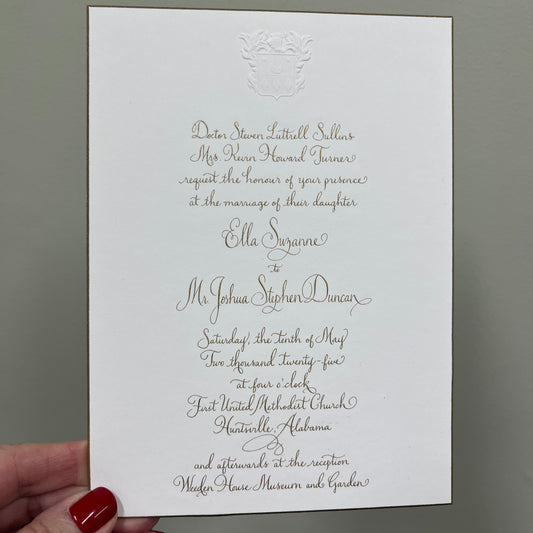 Doctor Steven Luttrell Sullins
Mrs. Kevin Howard Turner
request the honour of your presence
at the marriage of their daughter
Ella Suzanne
to
Mr. Joshua Stephen Duncan
Saturday, the tenth of May
Two thousand twenty-five
at four o'clock
First United Methodist Church
Huntsville, Alabama
and afterwards at the reception
Weeden House Museum and Garden